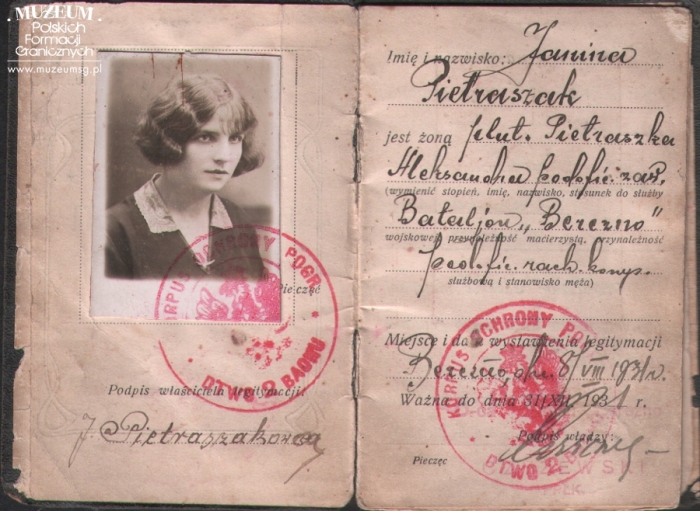 MUZEUM
Polskich
Formacji
Granicznych
www.muzeumsg.pl
KORPUS OCHRONY POGR
DTWO 2 BAONU
Pieczęć
Podpis właściciela legitymacji:
J. Pietraszakowa
Imię i nazwisko: Janina
Pietraszak
jest żoną plut. Pietraszka
Aleksandra podofic. zaw.
(wymienić stopień, imię, nazwisko, stosunek do służby
Bataljon „Berezno"
wojskowej, przynależność macierzystą, przynależność
podofic. rach. komp.
służbową i stanowisko męża)
Miejsce i data wystawienia legitymacji
Berezno, dn. 8/VIII 1931 r.
Ważna do dnia 31/XII 1931 r.
Podpis władzy:
Pieczęć
KORPUS OCHRONY PO
DTWO 2